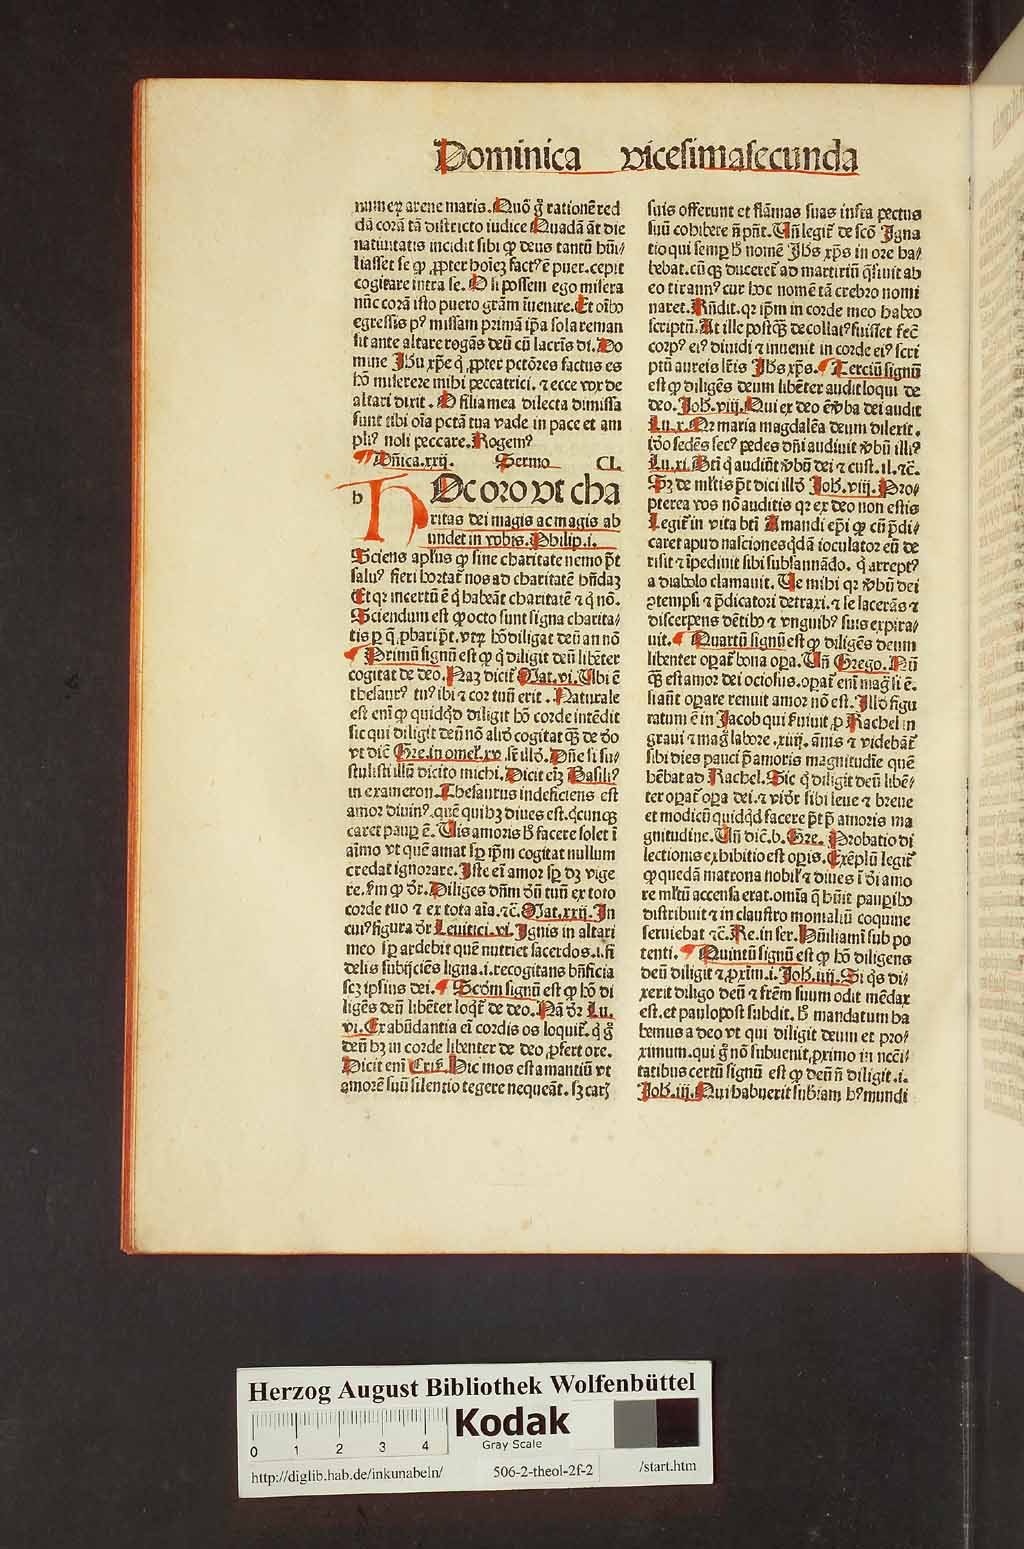 Dominica vicesimasecunda
numeꝝ arene maris. Quō g̊ rationē red
dā corā tā districto iudice Quadā āt die
natiuitatis incidit sibi ꝙ deus tantū hūi⸗
liasset se ꝙ ꝓpter hoīeꝫ fact⁹ ē puer. cepit
cogitare intra se. O si possem ego misera
nūc corā isto puero grām īuenire. Et oībꝰ
egressis pꝰ missam primā ip̄a sola reman
sit ante altare rogās deū cū lacrīs di. Do
mine Jhū xp̄e q̇ ꝓpter pctōres factus es
hō miserere mihi peccatrici. ⁊ ecce vox de
altari dixit. O filia mea dilecta dimissa
sunt tibi oīa pctā tua vade in pace et am
pliꝰ noli peccare. Rogemꝰ
¶ Dn̄ica. xxij. Sermo CL
h
Oc oro vt cha
ritas dei magis ac magis ab
undet in vobis. Philip. i.
Sciens apl̄us ꝙ sine charitate nemo pōt
saluꝰ fieri hortat᷑ nos ad charitatē hn̄daꝫ
Et qꝛ incertū ē q̇ habeāt charitatē ⁊ q̇ nō.
Sciendum est ꝙ octo sunt signa charita⸗
tis ꝑ q̄ ꝓbari pōt. vtꝝ hō diligat deū an nō
¶ Primū signū est ꝙ q̇ diligit deū libēter
cogitat de deo. Naꝫ dicit᷑ Mat. vi. Ubi ē
thesaurꝰ tuꝰ ibi ⁊ cor tuū erit. Naturale
est enī ꝙ quidqd̓ diligit hō corde intēdit
sic qui diligit deū nō aliō cogitat qꝫ de dō
vt dic̄ Gre. in omel. xv. ſꝫ illō. Dn̄e si su⸗
stulisti illū dicito michi. Dicit eīꝫ Basiliꝰ
in exameron. Thesaurus indeficiens est
amor diuinꝰ quē quihꝫ diues est. q̇cunqꝫ
caret paup̲ ē. Uis amoris hō facere solet ī
aīmo vt quē amat sp̲ ip̄m cogitat nullum
credat ignorare. Iste eī amor sp̲ dꝫ vige
re. ẜm ꝙ dr̄. Diliges dn̄m dū tuū ex toto
corde tuo ⁊ ex tota aīa. ⁊c̄. Mat. xxij. In
cuiꝰ figura dr̄ Leuitici. vi. Ignis in altari
meo sp̲ ardebit quē nutriet sacerdos. i. fi
delis subijciēs ligna. i. recogitans bn̄ficia
sꝫ ipsius dei. ¶ Scd̄m signū est ꝙ hō di
ligēs deū libēter loqt᷑ de deo. Nā dr̄ Lu.
vi. Ex abūdantia eī cordis os loquit᷑. q̇ g̊
deū hꝫ in corde libenter de deo ꝓfert ore.
Dicit enī Criſ. Hic mos est amantiū vt
amorē suū silentio tegere nequeāt. sꝫ cariſ
suis offerunt et flāmas suas infra pectus
suū cohibere n̄ pn̄t. Un̄ legit᷑ de scō Igna
tio qui semp̲ hō nomē Jhūs xp̄s in ore ha⸗
bebat. cū qꝫ duceret᷑ ad martiriū q̄siuit ab
eo tirannꝰ cur hoc nomē tā crebro nomi
naret. Rn̄dit. qꝛ ip̄m in corde meo habeo
scriptū. At ille postqꝫ decollatꝰ fuisset fec̄
corpꝰ eiꝰ diuidi ⁊ inuenit in corde eiꝰ scri
ptū aureis lr̄is Jhūs xp̄s. ¶ Terciū signū
est ꝙ diligēs deum libēter audit loqui de
deo. Joh. viij. Qui ex deo ē v̄ba dei audit
Lu. x. Qꝛ maria magdalēa deum dilexit.
Iō sedēs secꝰ pedes dn̄i audiuit v̄bū illiꝰ
Lu. xi. Bt̄i q̇ audiūt v̄bū dei ⁊ cust. il. ⁊c̄.
Sꝫ de ml̄tis pt̄ dici illō Joh. viij. Pro⸗
pterea vos nō auditis qꝛ ex deo non estis
Legit᷑ in vita bt̄i Amandi ep̄i ꝙ cū p̄di⸗
caret apud nasciones q̇dā ioculator eū de
risit ⁊ īpediuit sibi subsannādo. q̇ areptꝰ
a diabolo clamauit. Ue mihi qꝛ v̄bū dei
ꝯtempsi ⁊ p̄dicatori detraxi. ⁊ se lacerās ⁊
discerpens dētibꝰ ⁊ vnguibꝰ suis expira⸗
uit. ¶ Quartū signū est ꝙ diligēs deum
libenter op̲at᷑ bona op̲a. Un̄ Grego. Nū
qꝫ est amor dei ociosus. op̲at᷑ enī mag̊ si ē.
si aūt op̲are renuit amor nō est. Illō figu
ratum ē in Jacob qui ẜuiuit ꝓ Rachel in
graui ⁊ mag̊ labore. xiiij. ānis ⁊ videbāt᷑
sibi dies pauci p̄ amoris magnitudīe quē
hēbat ad Rachel. Sic q̇ diligit deū libē⸗
ter op̲at᷑ op̲a dei. ⁊ vidr̄ sibi leue ⁊ breue
et modicū quidqd̓ facere pōt p̄ amoris ma
gnitudine. Un̄ dic̄. b. Gre. Probatio di
lectionis exhibitio est op̲is. Exēplū legit᷑
ꝙ quedā matrona nobil ⁊ diues ī dī amo
re ml̄tū accensa erat. omīa q̄ hūit paup̲ibꝰ
distribuit ⁊ in claustro monialiū coquine
seruiebat ⁊c̄. Re. in ser. Hūiliamī sub po
tenti. ¶ Quintū signū est ꝙ hō diligens
deū diligit ⁊ ꝓxīm. i. Joh. iiij. Si q̇s di⸗
xerit diligo deū ⁊ frēm suum odit mēdax
est. et paulopost subdit. Hō mandatum ha
bemus a deo vt qui diligit deum et pro⸗
ximum. qui g̊ nō subuenit ꝓximo in ncc̄i⸗
tatibus certū signū est ꝙ deū n̄ diligit. i.
Joh. iij. Qui habuerit sub̄am hꝰ mundi
Herzog August Bibliothek Wolfenbüttel
0 1 2 3 4
Kodak
Gray Scale
http://diglib.hab.de/inkunabeln/ 506-2-theol-2f-2 /start.htm